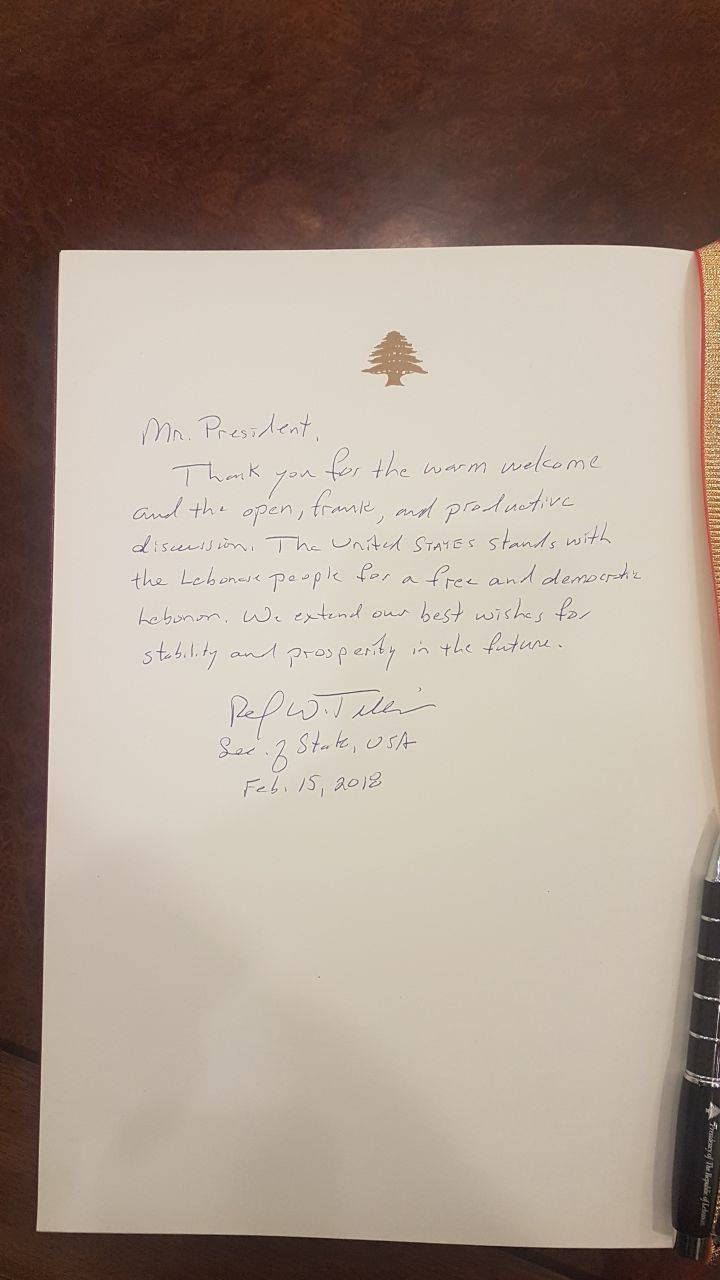 Mr. President,
Thank you for the warm welcome
and the open, frank, and productive
discussion. The United STATES stands with
the Lebanese people for a free and democratic
Lebanon. We extend our best wishes for
stability and prosperity in the future.
Rex W. Tillerson
Sec. of State, USA
Feb. 15, 2018
Presidency of The Republic of Lebanon